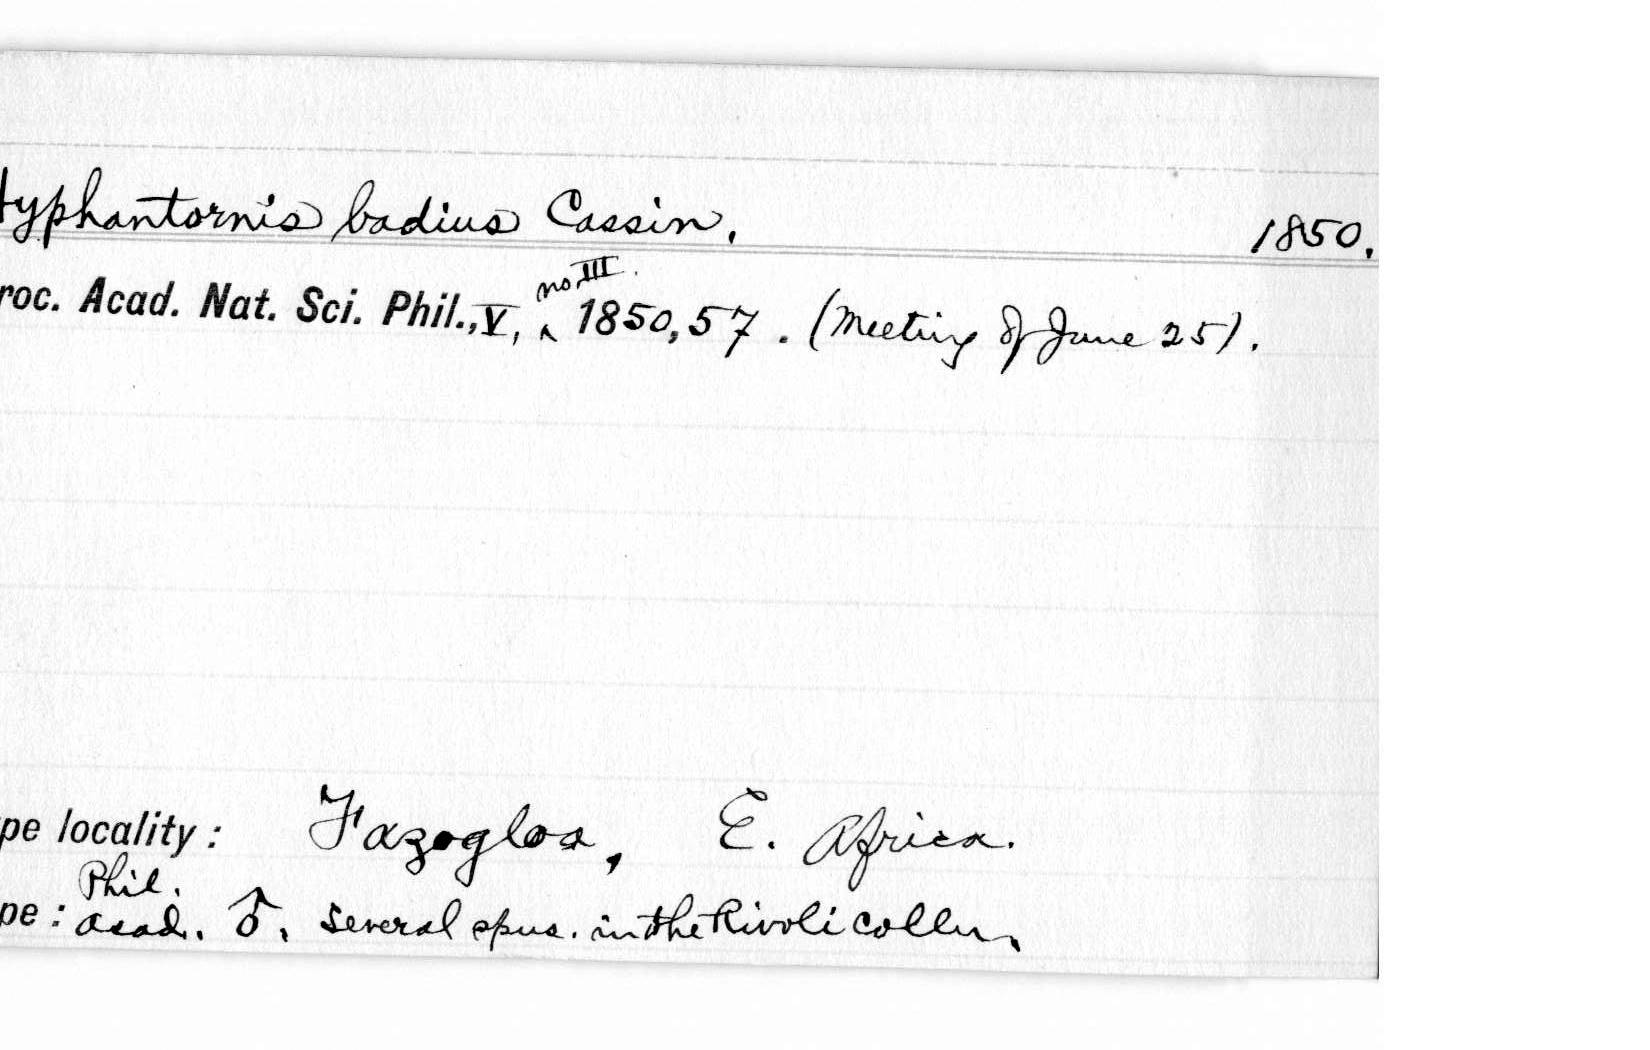 Hyphantornis badius Cassin. 1850.
roc. Acad. Nat. Sci. Phil., V, no. III. 1850, 57. (Meeting of June 25).
pe locality: Fazogloa, E. Africa.
Phil.
pe: Acad. ♂. several spns. in the Rivoli colln.